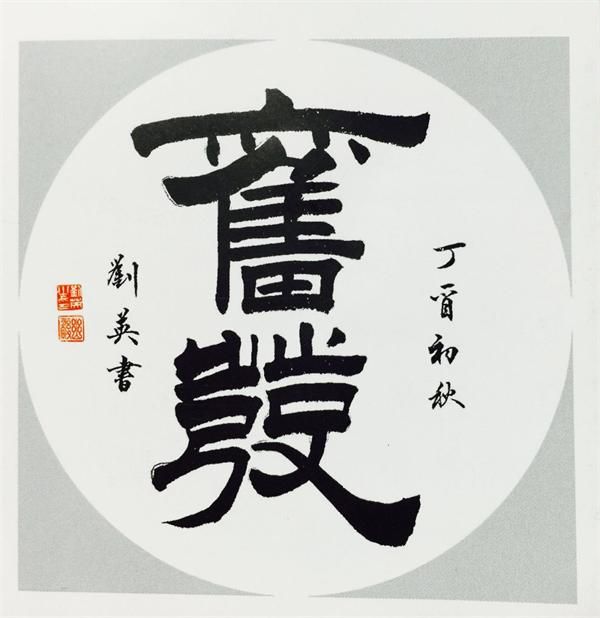 奮發
丁酉初秋
劉英書